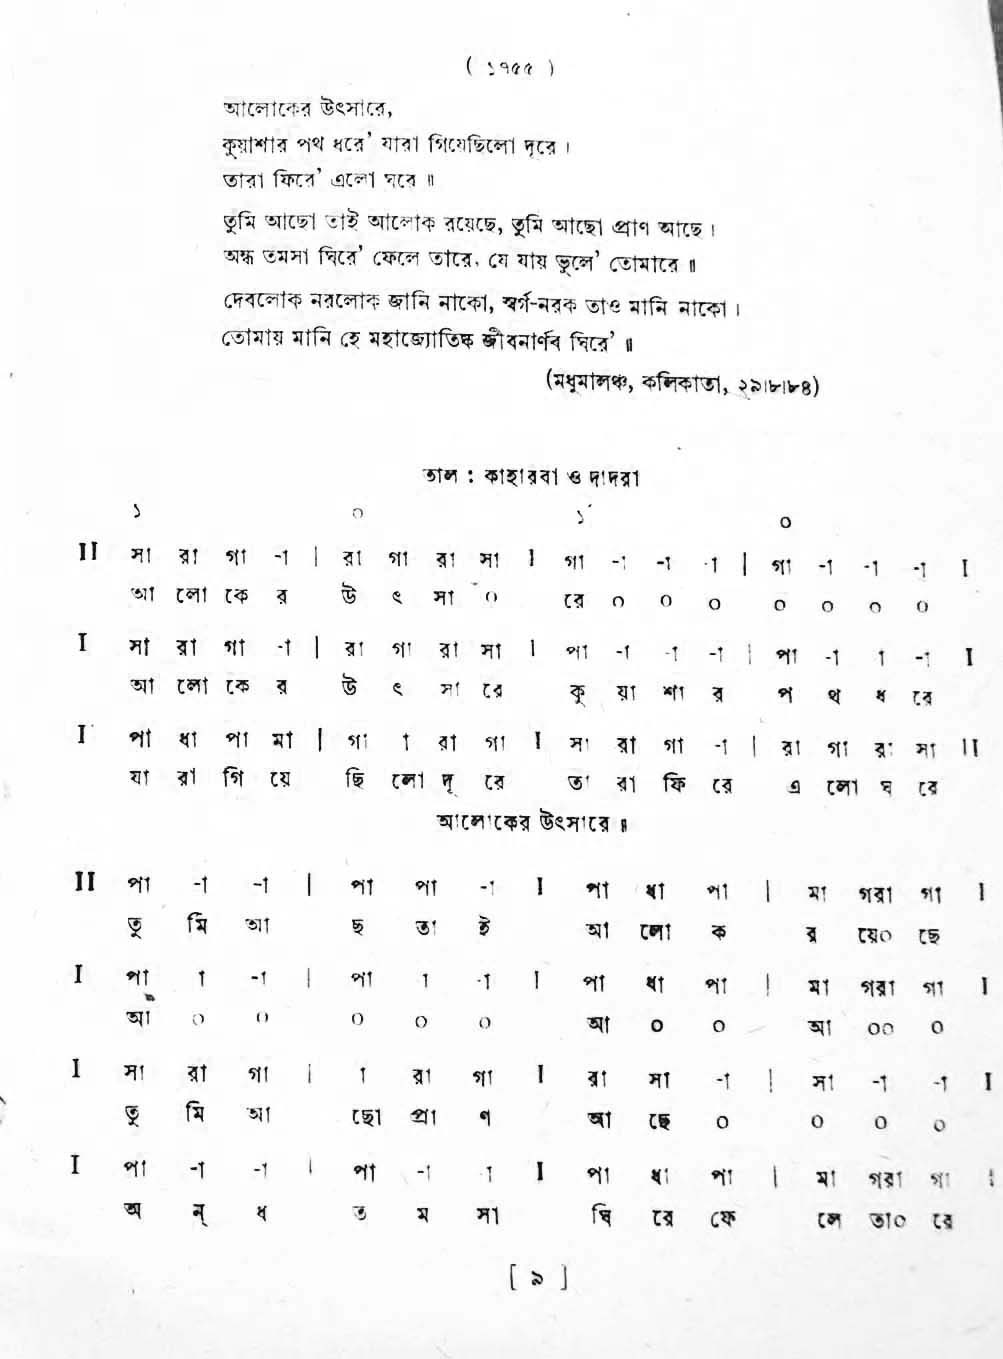 ( ১৭৫৫ )
আলোকের উৎসারে,
কুয়াশার পথ ধরে' যারা গিয়েছিলো দূরে ।
তারা ফিরে' এলো ঘরে ॥
তুমি আছো তাই আলোক রয়েছে, তুমি আছো প্রাণ আছে ।
অন্ধ তমসা ঘিরে' ফেলে তারে, যে যায় ভুলে' তোমারে ॥
দেবলোক নরলোক জানি নাকো, স্বর্গ-নরক তাও মানি নাকো ।
তোমায় মানি হে মহাজ্যোতিষ্ক জীবনার্ণব ঘিরে' ॥
(মধুমালঞ্চ, কলিকাতা, ২৯।৮।৮৪)
তাল : কাহারবা ও দাদরা
১ ০ ১´ ০
II সা রা গা -া | রা গা রা সা I গা -া -া -া | গা -া -া -া I
আ লো কে র উ ৎ সা ০ রে ০ ০ ০ ০ ০ ০ ০
I সা রা গা -া | রা গা রা সা I পা -া -া -া | পা -া া -া I
আ লো কে র উ ৎ সা রে কু য়া শা র প থ ধ রে
I পা ধা পা মা | গা া রা গা I সা রা গা -া | রা গা রা সা II
যা রা গি য়ে ছি লো দূ রে তা রা ফি রে এ লো ঘ রে
আলোকের উৎসারে ॥
II পা -া -া | পা পা -া I পা ধা পা | মা গরা গা I
তু মি আ ছ তা ই আ লো ক র য়ে০ ছে
I পা া -া | পা া -া I পা ধা পা | মা গরা গা I
আ ০ ০ ০ ০ ০ আ ০ ০ আ ০০ ০
I সা রা গা | া রা গা I রা সা -া | সা -া -া I
তু মি আ ছো প্রা ণ আ ছে ০ ০ ০ ০
I পা -া -া | পা -া া I পা ধা পা | মা গরা গা I
অ ন্ ধ ত ম সা ঘি রে ফে লে তা০ রে
[ ৯ ]